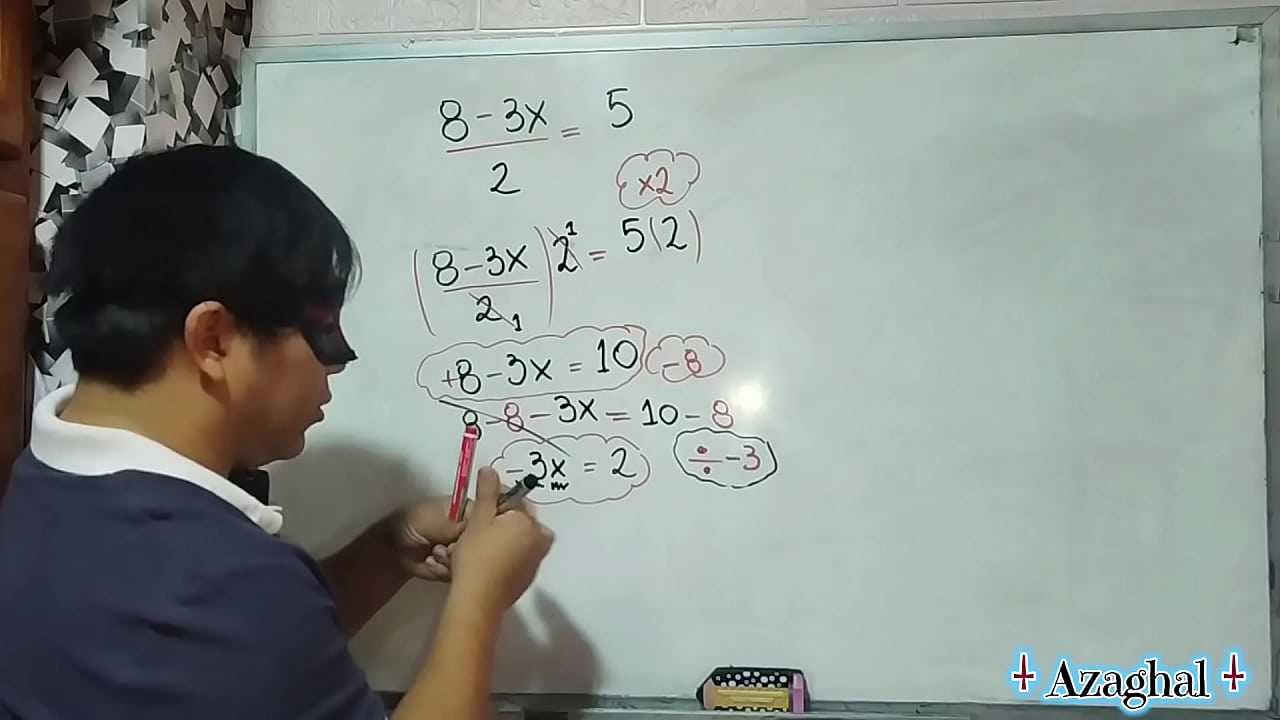 8 - 3x = 5
2
×2
(8 - 3x) 2 1 = 5(2)
2 1
+8 - 3x = 10 - 8
8 - 8 - 3x = 10 - 8
- 3x = 2 ÷ - 3
Azaghal